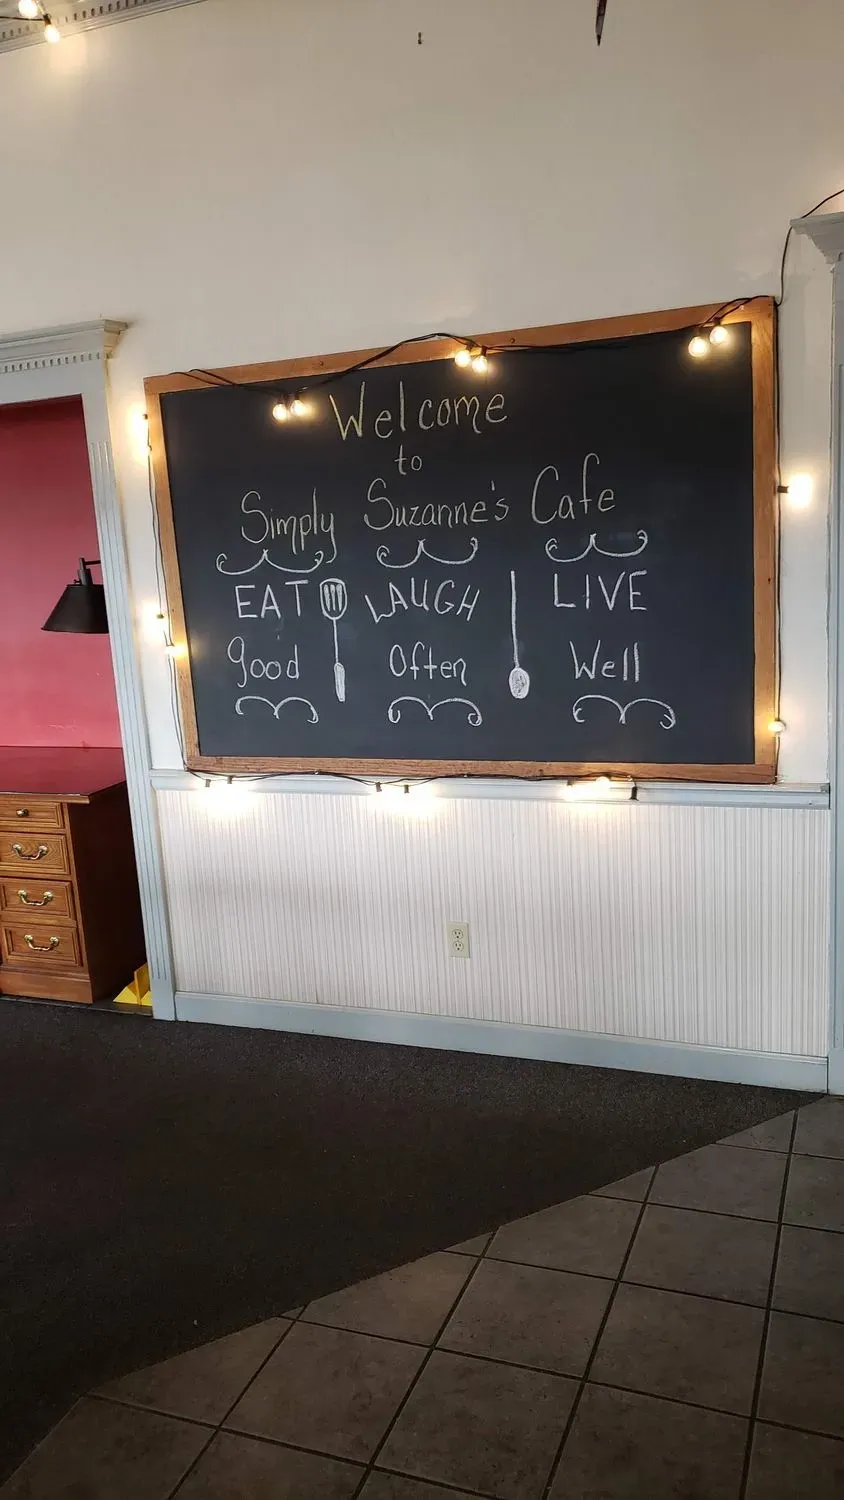 Welcome
to
Simply Suzanne's Cafe
EAT LAUGH LIVE
good Often Well